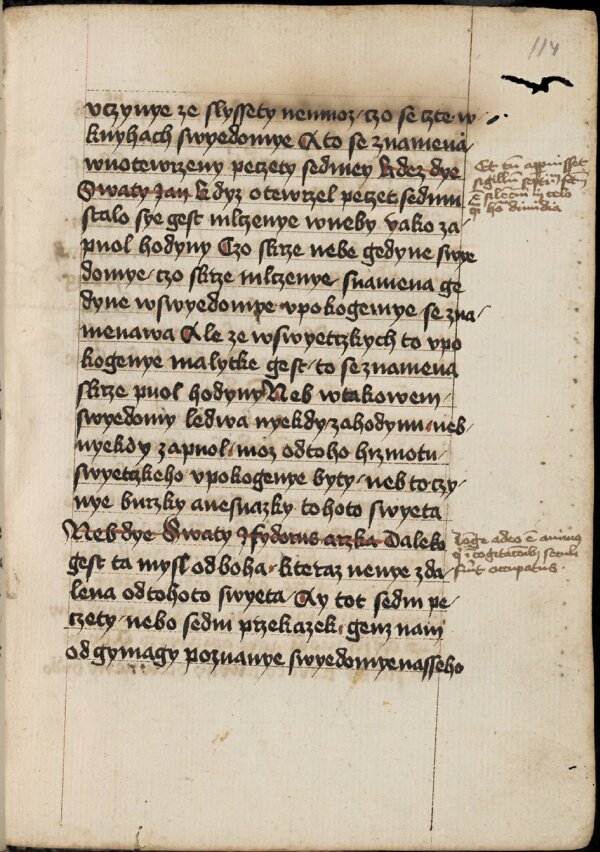 114
vczynye ze slyssety nemoz / czo se czte w
knyhach swyedomye A to se znamena
wnotewrzeny peczety sedmey kdez dye
Swaty Jan kdyz otewrzel peczet sedmu
stalo sye gest mlczenye wneby yako za
puol hodyny Czo skrze nebe gedyne swye
domye / czo skrze mlczenye / znamena ge
dyne wswyedompe vpokogemye / se zna /
menawa Ale ze wswyetczkych to vpo
kogenye malytke gest / to seznamena
skrze puol hodyny Neb wtakowem /
swyedomy ledwa nyekdy zahodynu / neb /
nyekdy zapuol / moz odtoho hrzmotu /
swyetczkeho vpokogenye byty / neb toczy /
nye burzky anesnazky tohoto swyeta
Neb dye Swaty Jsydorus arzka Daleko
gest ta mysl od boha / kteraz nenye zda /
lena odtohoto swyeta / Ay tot sedm pe /
czety / nebo sedm przekazek / genz nam
od gymagy poznanye swyedomye nasseho
Et cum apperuisset
sigillum septimum factum
est silencium in celo
quasi hora dimidia
Longe a deo est animus
qui cogitationibus seculi
sunt occupatus